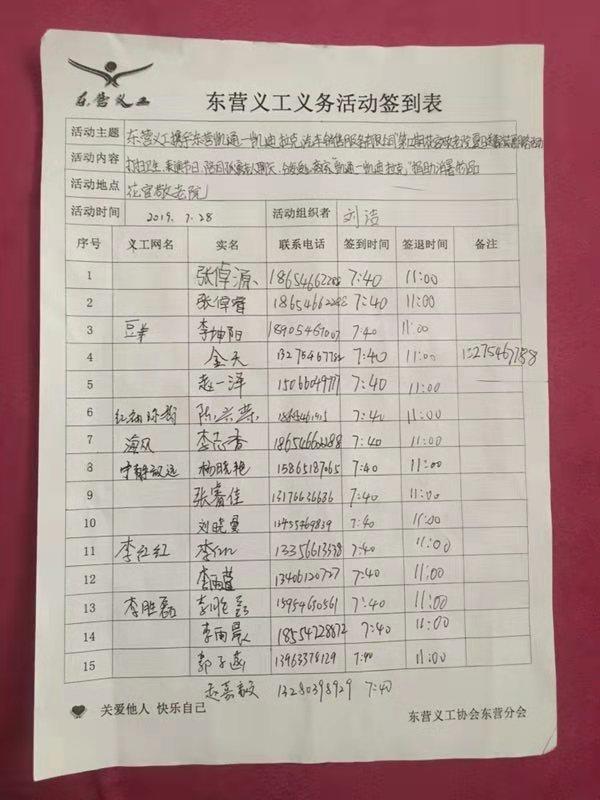 东营义工
东营义工义务活动签到表
活动主题 东营义工携手东营凯通一凯迪拉克汽车销售服务有限公司
活动内容 打扫卫生,表演节目,陪 老人聊天, "凯通一凯迪拉克"捐助消暑物品
活动地点 花官敬老院
活动时间 2019.7.28 活动组织者 刘洁
序号 义工网名 实名 联系电话 签到时间 签退时间 备注
1 张倬源 18654662288 7:40 11:00
2 张倬睿 18654662288 7:40 11:00
3 豆美 李坤阳 18905467007 7:40 11:00
4 金天 7:40 11:00
5 赵一泽 7:40 11:00
6 陈兴燕 7:40 11:00
7 海风 李志香 18654662288 7:40 11:00
8 宁静致远 杨晓艳 15865187065 7:40 11:00
9 张睿佳 13176636636 7:40 11:00
10 刘晓 7:40 11:00
11 李红红 李红红 13356613538 7:40 11:00
12 李雨萱 13406120727 7:40 11:00
13 李胜磊 李胜磊 15954650561 7:40 11:00
14 李雨晨 18554728872 7:40 11:00
15 郭子涵 13963378129 7:40 11:00
赵嘉毅 13280398929 7:40
关爱他人 快乐自己 东营义工协会东营分会